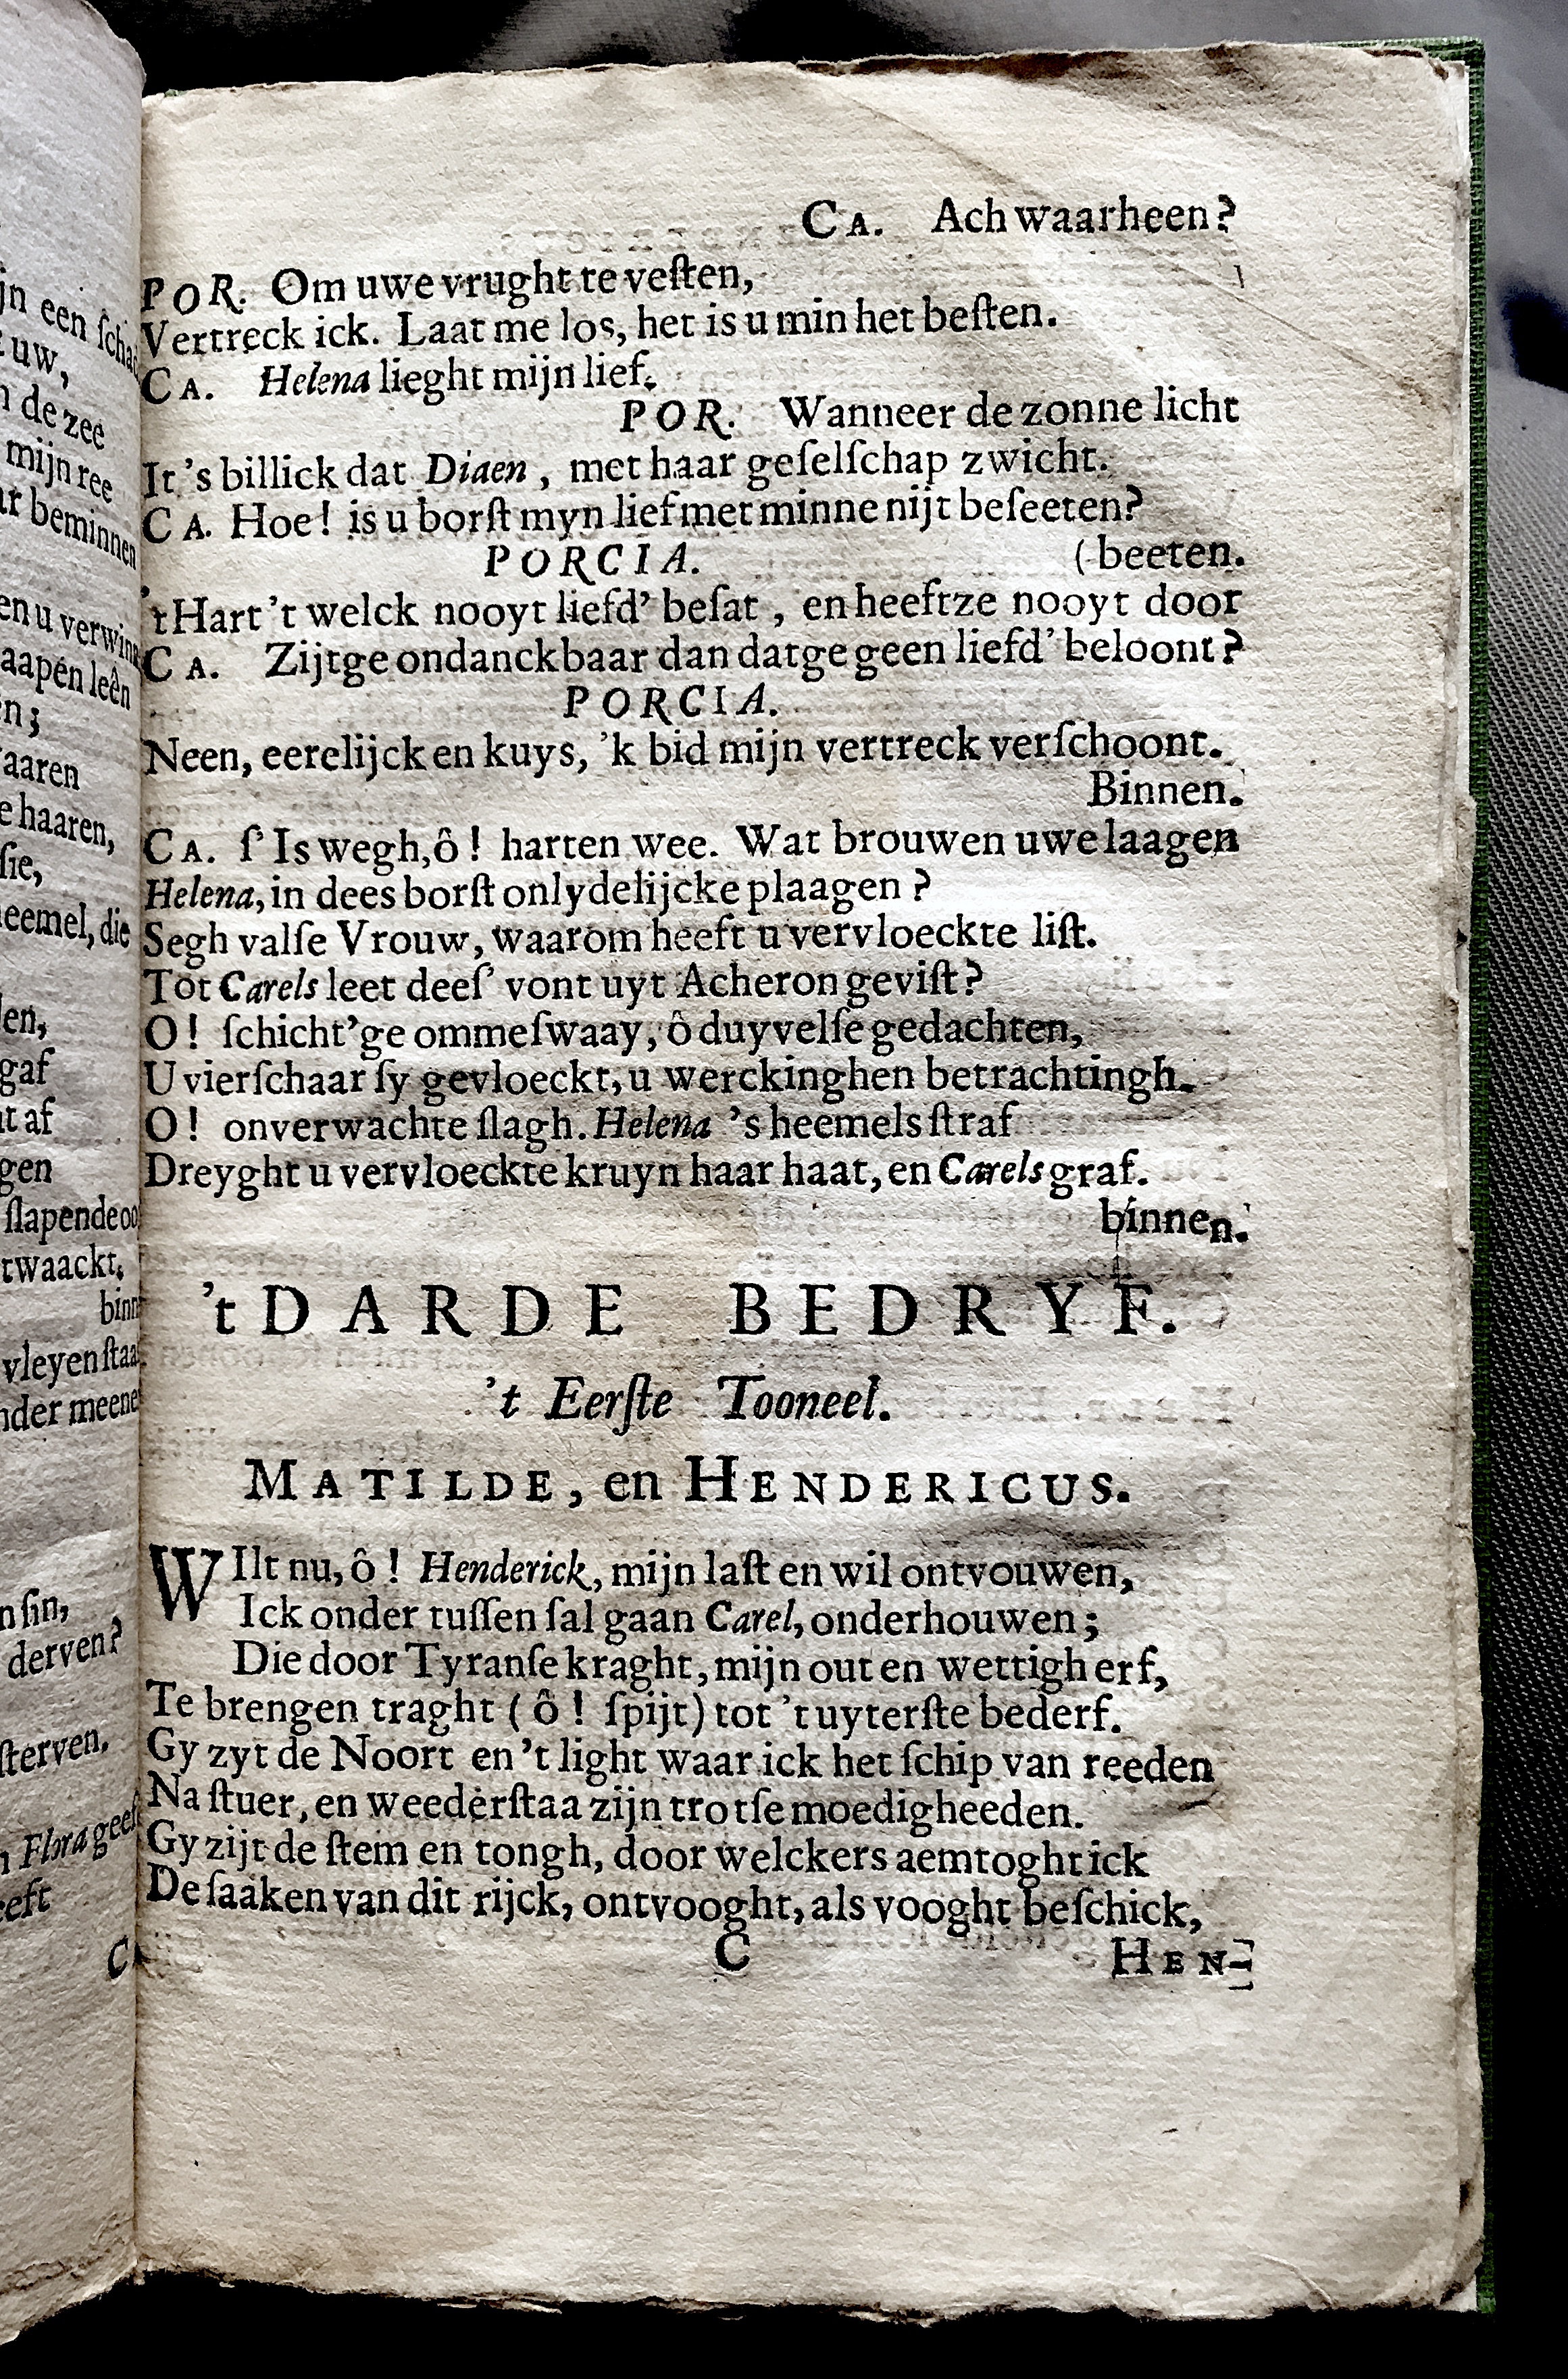 CA. Ach waarheen?
POR. Om uwe vrught te veſten,
Vertreck ick. Laat me los, het is u min het beſten.
CA. Helena lieght mijn lief.
POR. Wanneer de zonne licht
It 's billick dat Diaen, met haar geſelſchap zwicht.
CA. Hoe! is u borſt myn lief met minne nijt beſeeten?
PORCIA. (beeten.
't Hart 't welck nooyt liefd' beſat, en heeftze nooyt door
CA. Zijtge ondanckbaar dan datge geen liefd' beloont?
PORCIA.
Neen, eerelijck en kuys, 'k bid mijn vertreck verſchoont.
Binnen.
CA. ſ' Is wegh, ô! harten wee. Wat brouwen uwe laagen
Helena, in dees borſt onlydelijcke plaagen?
Segh valſe Vrouw, waarom heeft u vervloeckte liſt.
Tot Carels leet deeſ' vont uyt Acheron geviſt?
O! ſchicht'ge ommeſwaay, ô duyvelſe gedachten,
U vierſchaar ſy gevloeckt, u werckinghen betrachtingh.
O! onverwachte ſlagh. Helena 's heemels ſtraf
Dreyght u vervloeckte kruyn haar haat, en Carels graf.
binnen.
't DARDE BEDRYF.
't Eerſte Tooneel.
MATILDE, en HENDERICUS.
WIlt nu, ô! Henderick, mijn laſt en wil ontvouwen,
Ick onder tuſſen ſal gaan Carel, onderhouwen;
Die door Tyranſe kraght, mijn out en wettigh erf,
Te brengen traght (ô! ſpijt) tot 't uyterſte bederf.
Gy zyt de Noort en 't light waar ick het ſchip van reeden
Na ſtuer, en weederſtaa zijn trotſe moedigheeden.
Gy zijt de ſtem en tongh, door welckers aemtoght ick
De ſaaken van dit rijck, ontvooght, als vooght beſchick,
C HEN-